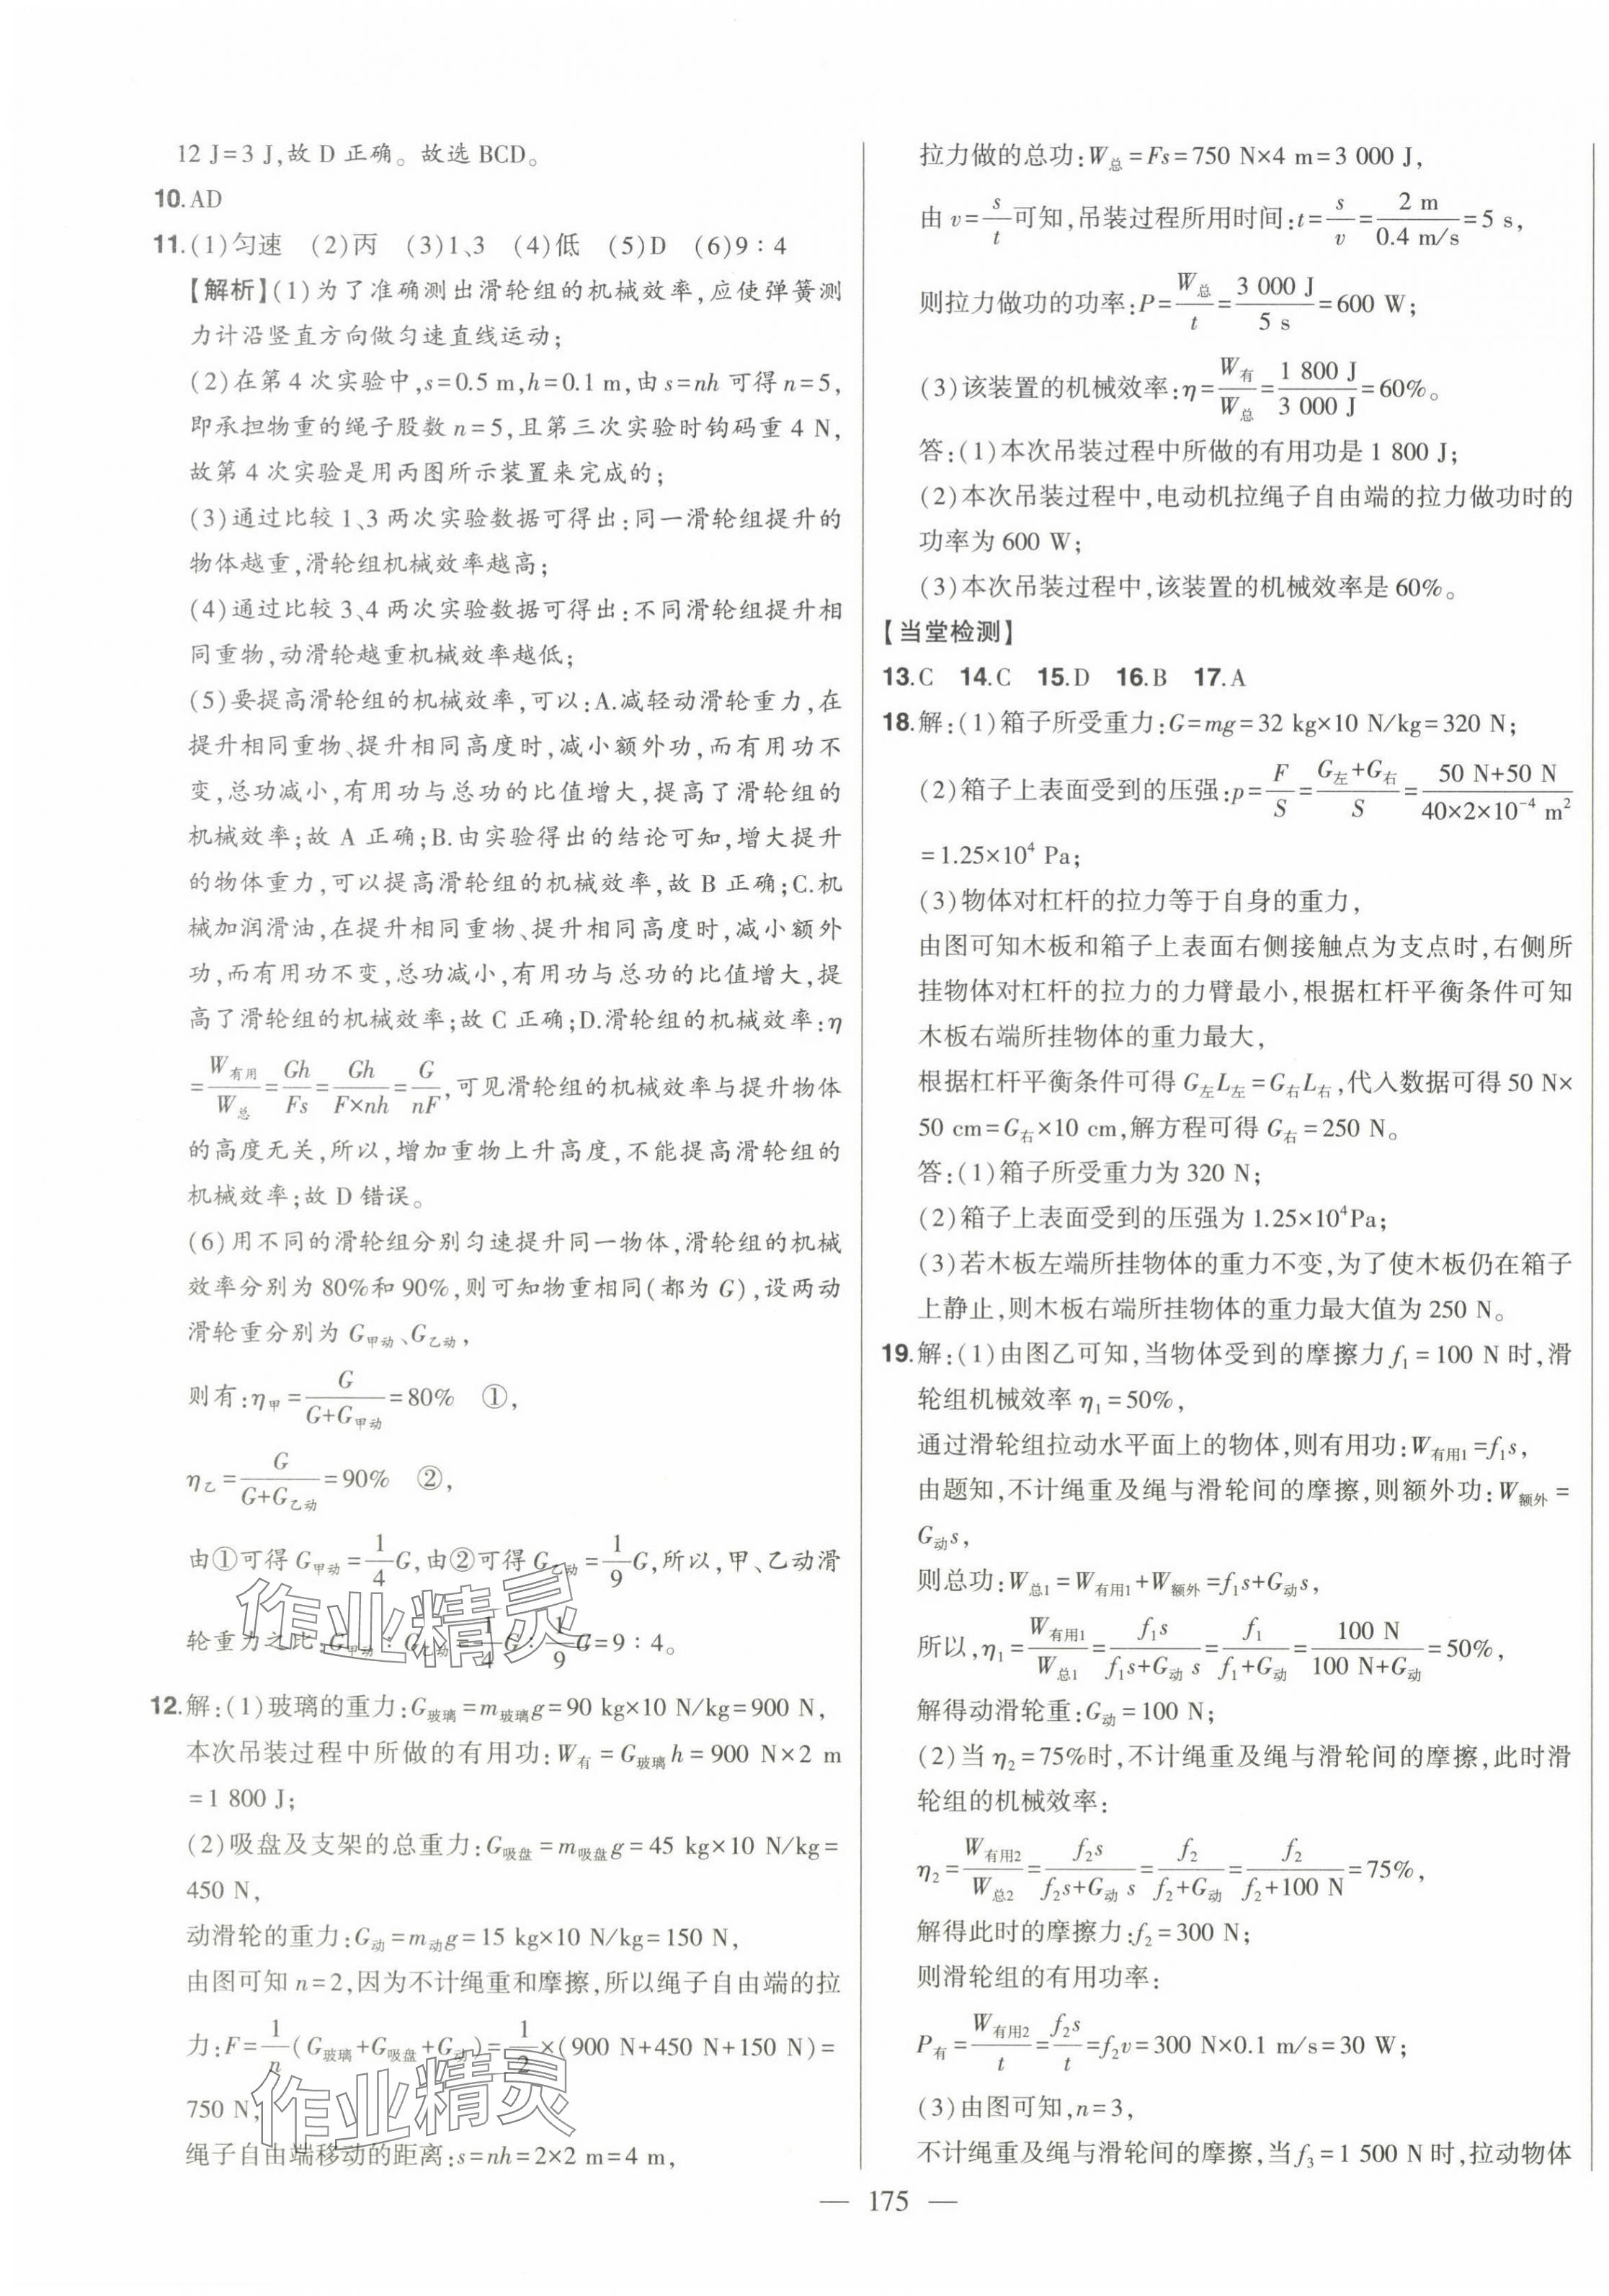 12 J=3 J,故 D 正确。故选 BCD。
10.AD
11.(1)匀速 (2)丙 (3)1、3 (4)低 (5)D (6)9∶4
【解析】(1)为了准确测出滑轮组的机械效率,应使弹簧测
力计沿竖直方向做匀速直线运动;
(2)在第 4 次实验中,s=0.5 m,h=0.1 m,由 s=nh 可得 n=5,
即承担物重的绳子股数 n=5,且第三次实验时钩码重 4 N,
故第 4 次实验是用丙图所示装置来完成的;
(3)通过比较 1、3 两次实验数据可得出:同一滑轮组提升的
物体越重,滑轮组机械效率越高;
(4)通过比较 3、4 两次实验数据可得出:不同滑轮组提升相
同重物,动滑轮越重机械效率越低;
(5)要提高滑轮组的机械效率,可以:A.减轻动滑轮重力,在
提升相同重物、提升相同高度时,减小额外功,而有用功不
变,总功减小,有用功与总功的比值增大,提高了滑轮组的
机械效率;故 A 正确;B.由实验得出的结论可知,增大提升
的物体重力,可以提高滑轮组的机械效率,故 B 正确;C.机
械加润滑油,在提升相同重物、提升相同高度时,减小额外
功,而有用功不变,总功减小,有用功与总功的比值增大,提
高了滑轮组的机械效率;故 C 正确;D.滑轮组的机械效率:η
=W有用/W总=Gh/Fs=Gh/(F×nh)=G/nF,可见滑轮组的机械效率与提升物体
的高度无关,所以,增加重物上升高度,不能提高滑轮组的
机械效率;故 D 错误。
(6)用不同的滑轮组分别匀速提升同一物体,滑轮组的机械
效率分别为 80%和 90%,则可知物重相同(都为 G),设两动
滑轮重分别为 G甲动、G乙动,
则有:η甲=G/(G+G甲动)=80% ①,
η乙=G/(G+G乙动)=90% ②,
由①可得 G甲动=1/4G,由②可得 G乙动=1/9G,所以,甲、乙动滑
轮重力之比,G甲动∶G乙动=1/4G∶1/9G=9∶4。
12.解:(1)玻璃的重力:G玻璃=m玻璃g=90 kg×10 N/kg=900 N,
本次吊装过程中所做的有用功:W有=G玻璃h=900 N×2 m
=1 800 J;
(2)吸盘及支架的总重力:G吸盘=m吸盘g=45 kg×10 N/kg=
450 N,
动滑轮的重力:G动=m动g=15 kg×10 N/kg=150 N,
由图可知 n=2,因为不计绳重和摩擦,所以绳子自由端的拉
力:F=1/n(G玻璃+G吸盘+G动)=1/2×(900 N+450 N+150 N)=
750 N,
绳子自由端移动的距离:s=nh=2×2 m=4 m,
拉力做的总功:W总=Fs=750 N×4 m=3 000 J,
由 v=s/t可知,吊装过程所用时间:t=s/v=2 m/0.4 m/s=5 s,
则拉力做功的功率:P=W总/t=3 000 J/5 s=600 W;
(3)该装置的机械效率:η=W有/W总=1 800 J/3 000 J=60%。
答:(1)本次吊装过程中所做的有用功是 1 800 J;
(2)本次吊装过程中,电动机拉绳子自由端的拉力做功时的
功率为 600 W;
(3)本次吊装过程中,该装置的机械效率是 60%。
【当堂检测】
13.C 14.C 15.D 16.B 17.A
18.解:(1)箱子所受重力:G=mg=32 kg×10 N/kg=320 N;
(2)箱子上表面受到的压强:p=F/S=(G左+G右)/S=(50 N+50 N)/(40×2×10⁻⁴ m²)
=1.25×10⁴ Pa;
(3)物体对杠杆的拉力等于自身的重力,
由图可知木板和箱子上表面右侧接触点为支点时,右侧所
挂物体对杠杆的拉力的力臂最小,根据杠杆平衡条件可知
木板右端所挂物体的重力最大,
根据杠杆平衡条件可得 G左L左=G右L右,代入数据可得 50 N×
50 cm=G右×10 cm,解方程可得 G右=250 N。
答:(1)箱子所受重力为 320 N;
(2)箱子上表面受到的压强为 1.25×10⁴Pa;
(3)若木板左端所挂物体的重力不变,为了使木板仍在箱子
上静止,则木板右端所挂物体的重力最大值为 250 N。
19.解:(1)由图乙可知,当物体受到的摩擦力 f₁=100 N 时,滑
轮组机械效率 η₁=50%,
通过滑轮组拉动水平面上的物体,则有用功:W有用1=f₁s,
由题知,不计绳重及绳与滑轮间的摩擦,则额外功:W额外=
G动s,
则总功:W总1=W有用1+W额外=f₁s+G动s,
所以,η₁=W有用1/W总1=f₁s/(f₁s+G动 s)=f₁/(f₁+G动)=100 N/(100 N+G动)=50%,
解得动滑轮重:G动=100 N;
(2)当 η₂=75%时,不计绳重及绳与滑轮间的摩擦,此时滑
轮组的机械效率:
η₂=W有用2/W总2=f₂s/(f₂s+G动 s)=f₂/(f₂+G动)=f₂/(f₂+100 N)=75%,
解得此时的摩擦力:f₂=300 N;
则滑轮组的有用功率:
P有=W有用2/t=f₂s/t=f₂v=300 N×0.1 m/s=30 W;
(3)由图可知,n=3,
不计绳重及绳与滑轮间的摩擦,当 f₃=1 500 N 时,拉动物体
— 175 —
作业精灵
作业精灵